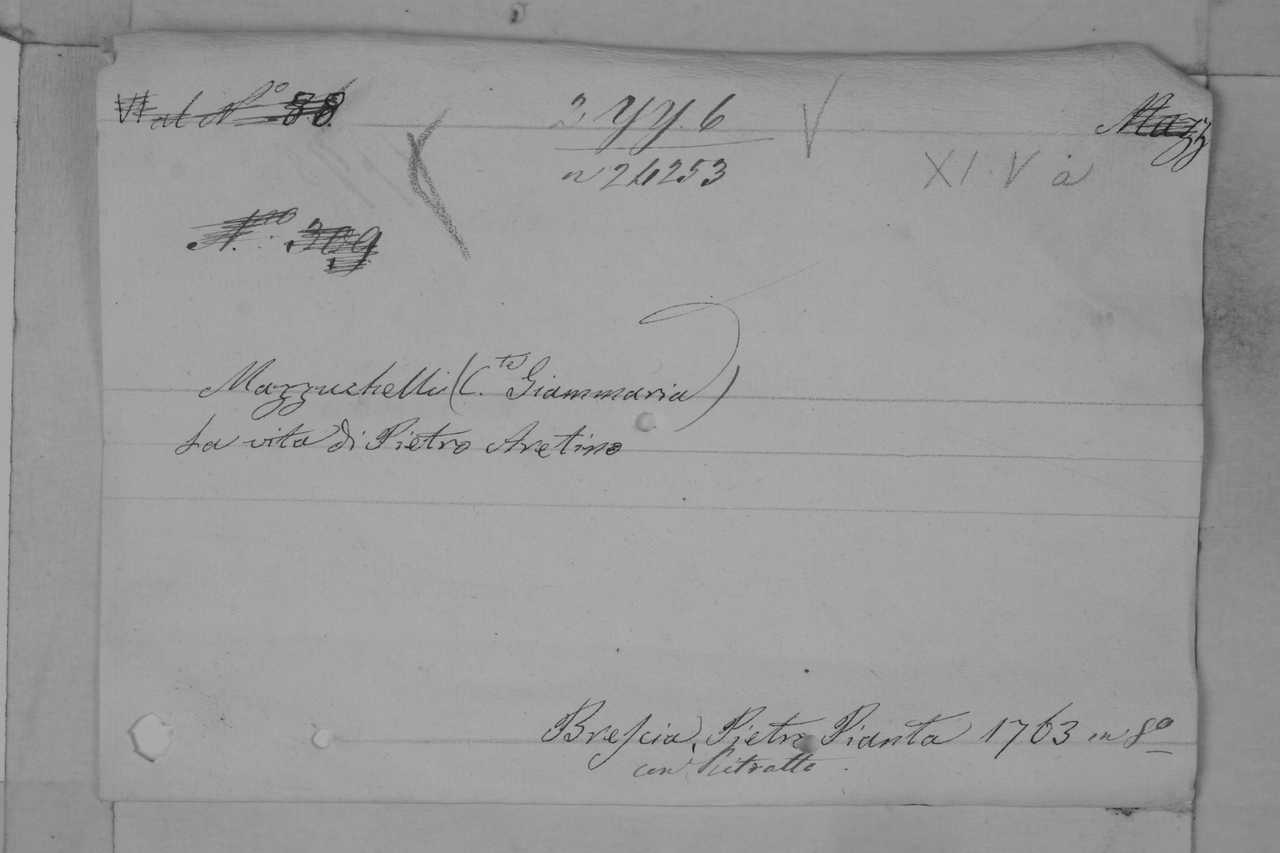 al N° 88
2 yy. 6
V
Mazz
n 24253
XI V a
N.ro 309
Mazzuchelli (C.te Giammaria)
La vita di Pietro Aretino
Breſcia, Pietro Pianta 1763 in 8°
con Ritratto.